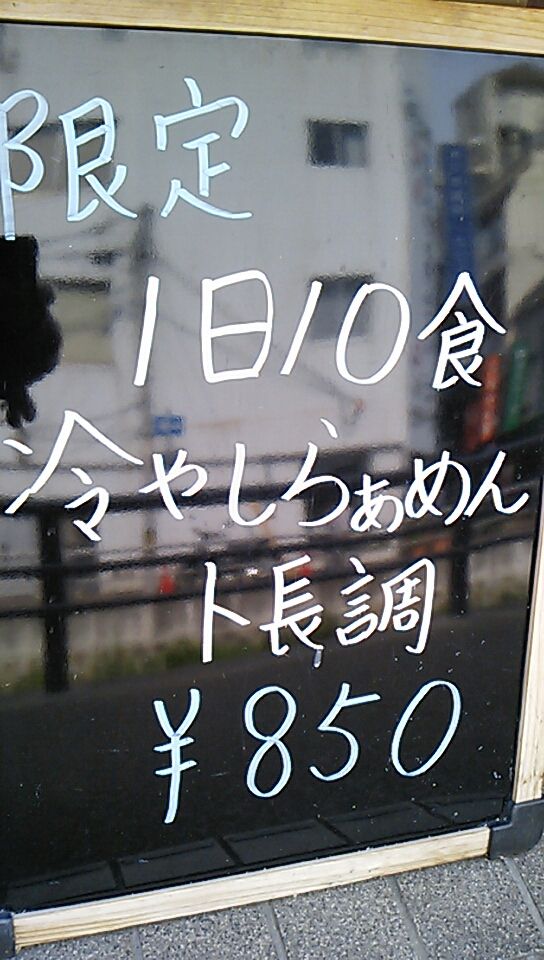 限定
1日10食
冷やしらぁめん
ト長調
¥850